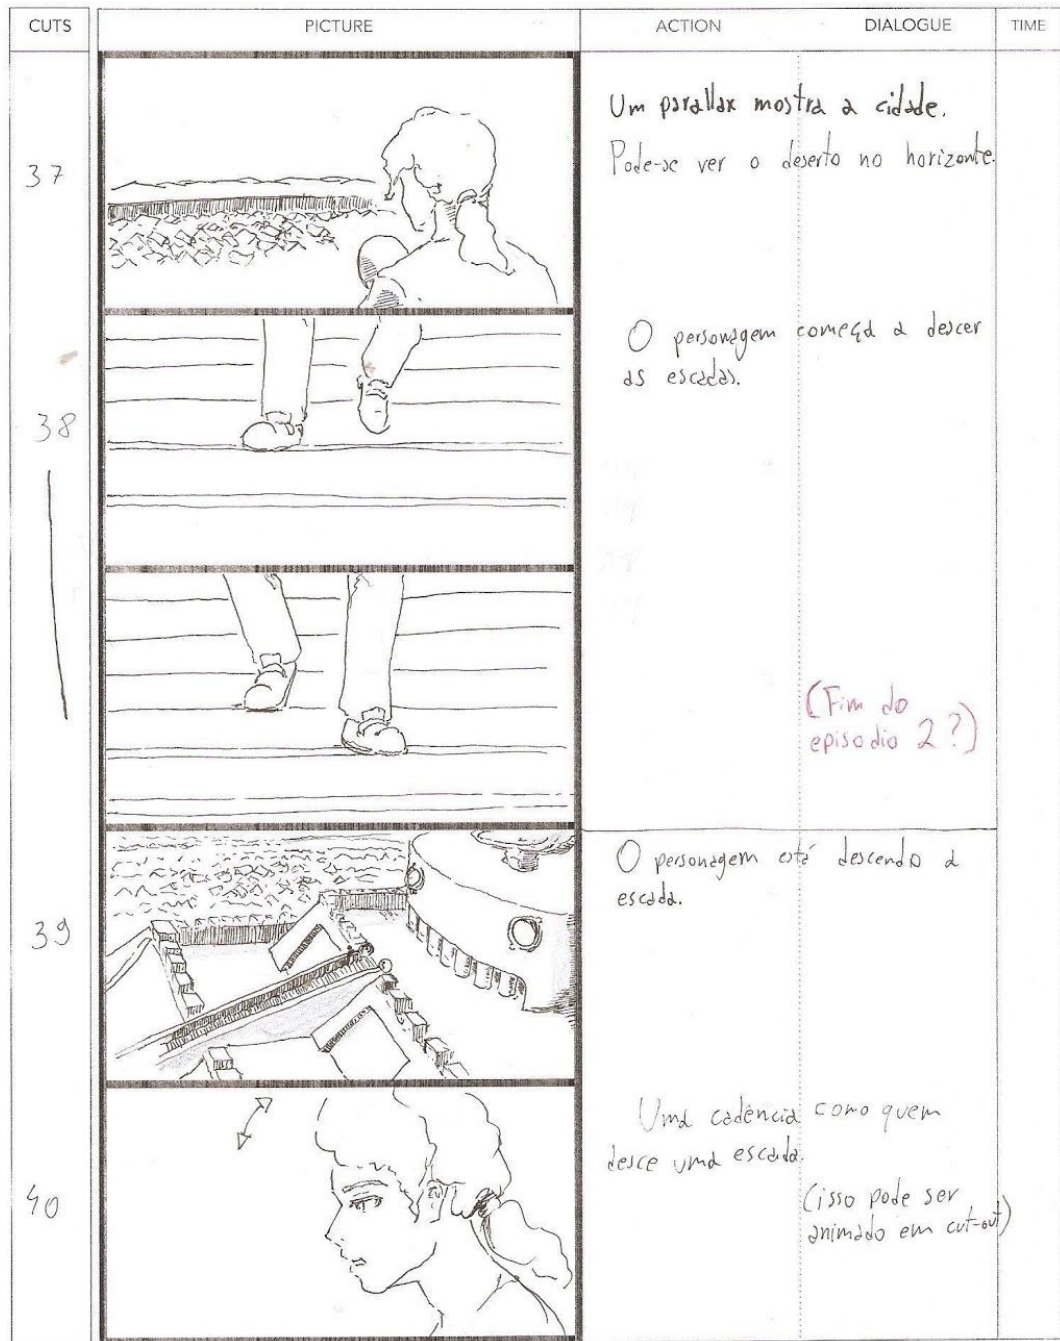 CUTS PICTURE ACTION DIALOGUE TIME
37
Um parallax mostra a cidade.
Pode-se ver o deserto no horizonte.
38
O personagem começa a descer
as escadas.
(Fim do
episodio 2?)
39
O personagem está descendo a
escada.
40
Uma cadência como quem
desce uma escada.
(isso pode ser
animado em cut-out)